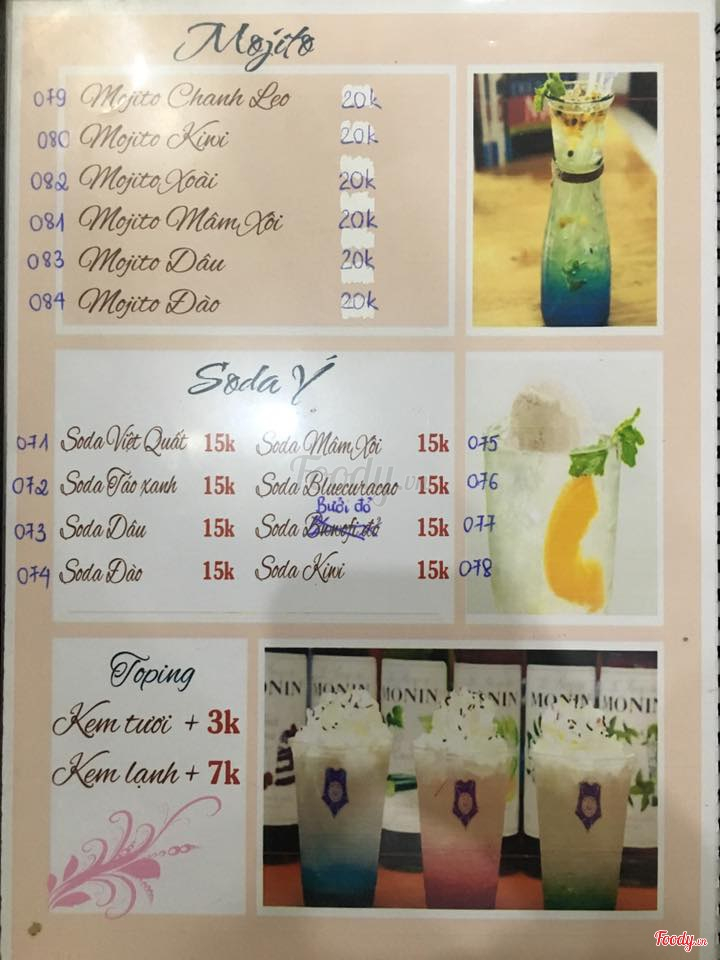 Mojito
079 Mojito Chanh Leo 20k
080 Mojito Kiwi 20k
082 Mojito Xoài 20k
081 Mojito Mâm Xôi 20k
083 Mojito Dâu 20k
084 Mojito Đào 20k
Soda Ý
071 Soda Việt Quất 15k Soda Mâm Xôi 15k 075
072 Soda Táo xanh 15k Soda Bluecuracao 15k 076
Bưởi đỏ
073 Soda Dâu 15k Soda 15k 077
074 Soda Đào 15k Soda Kiwi 15k 078
Foody.vn
Toping
Kem tươi + 3k
Kem lạnh + 7k
MONIN MONIN MONIN MONIN MONIN
Foody.vn